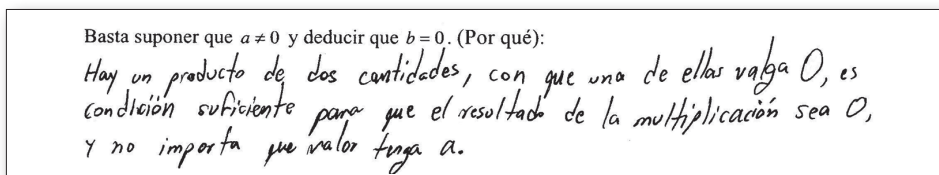 Basta suponer que a ≠ 0 y deducir que b = 0. (Por qué):
Hay un producto de dos cantidades, con que una de ellas valga 0, es
condición suficiente para que el resultado de la multiplicación sea 0,
y no importa que valor tenga a.